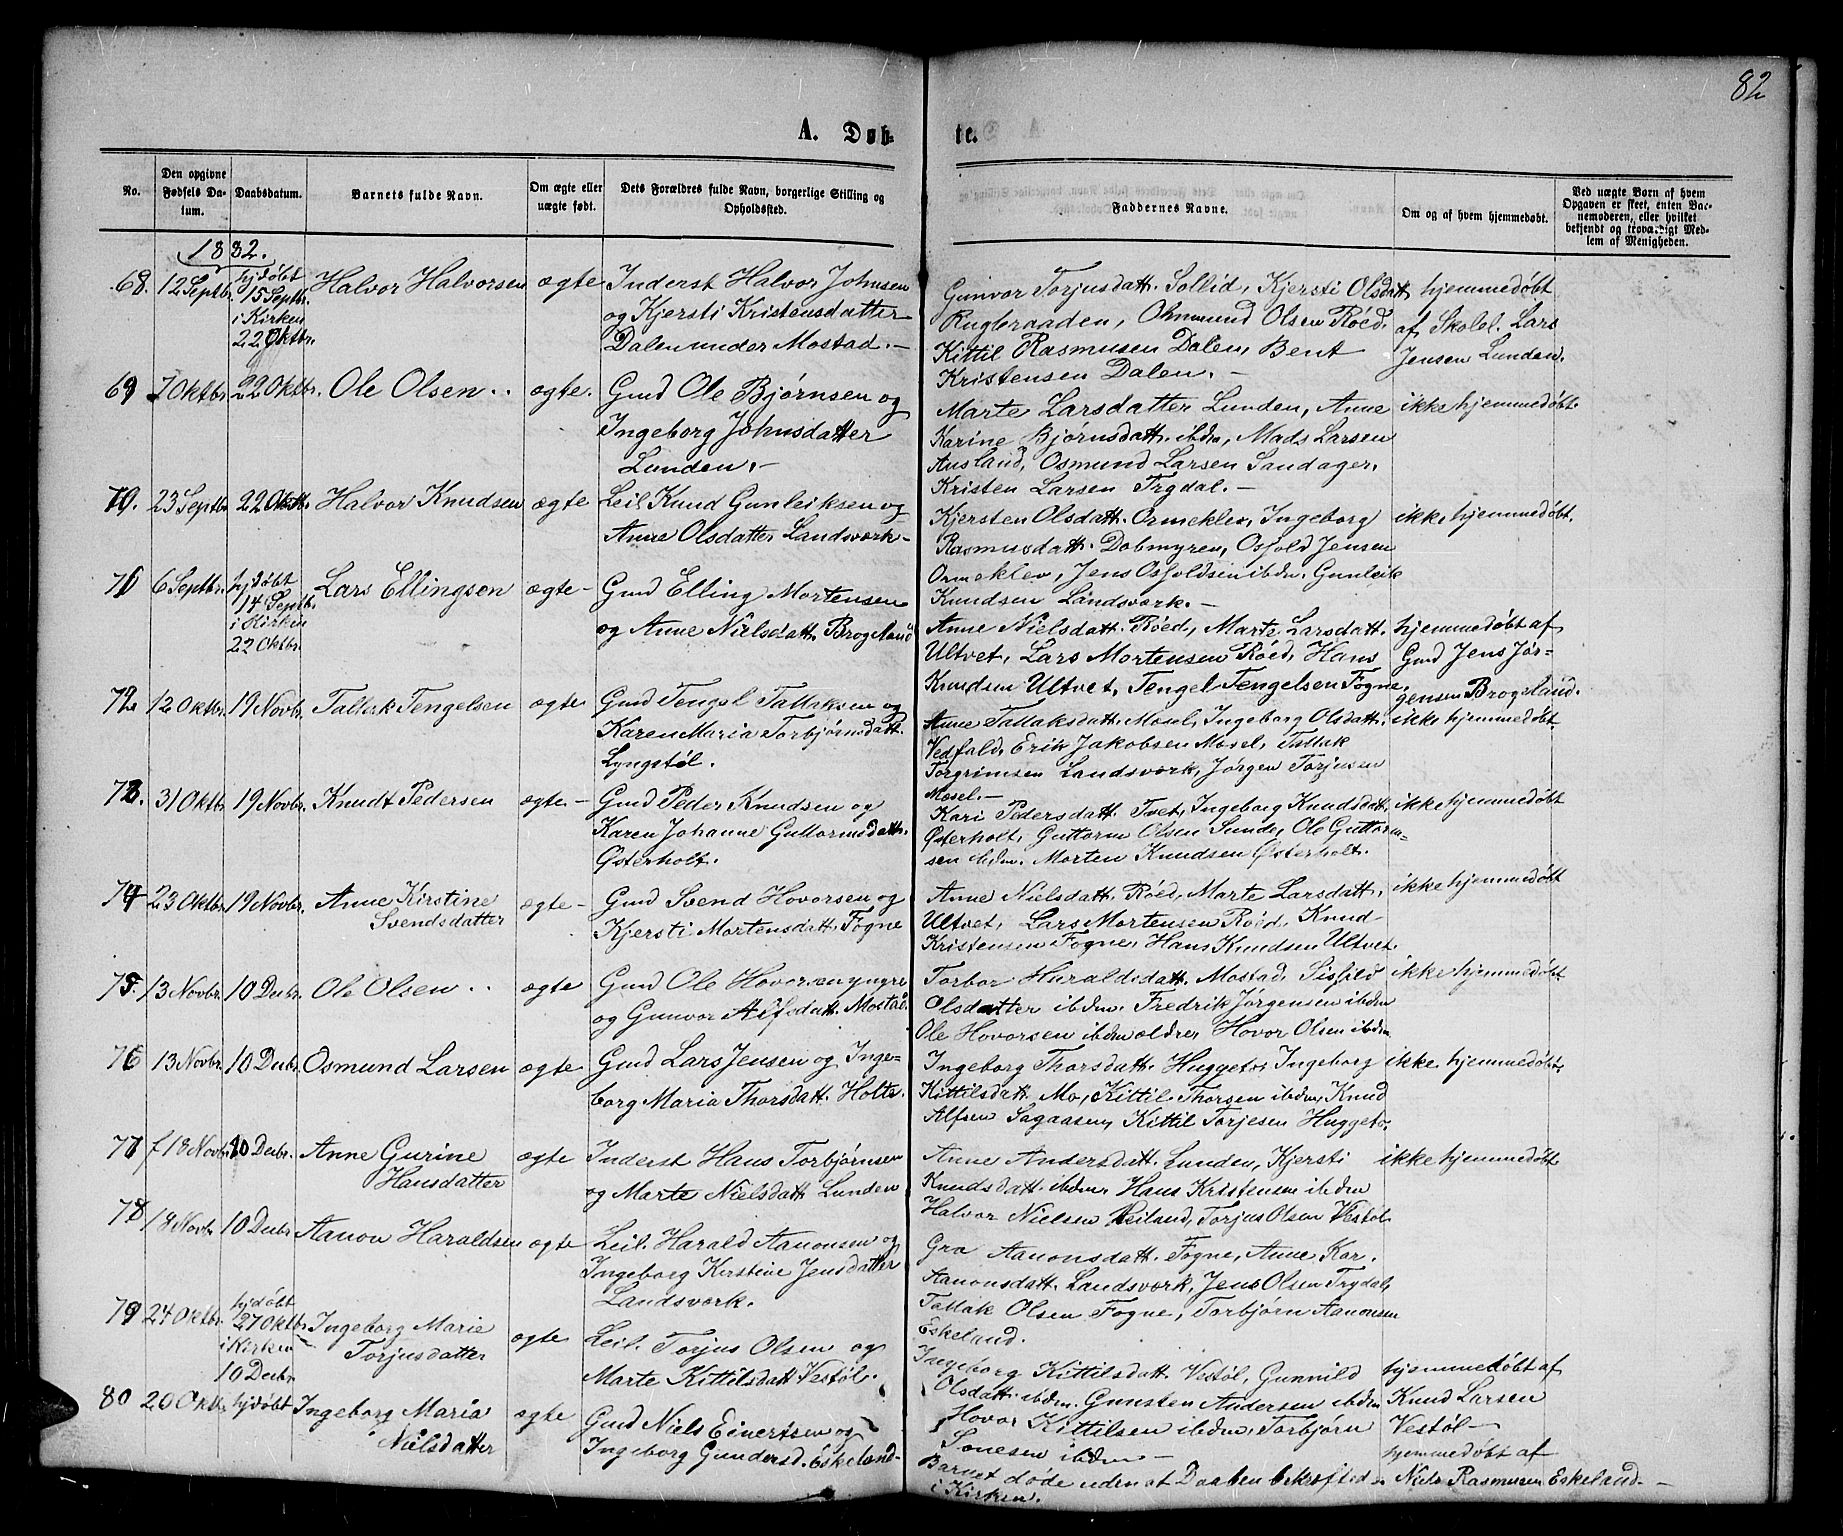 82
A. Døb-
te.
No.
Den opgivne Fødsels Da-tum.
Daabsdatum.
Barnets fulde Navn.
Om ægte eller uægte født.
Dets Forældres fulde Navn, borgerlige Stilling og Opholdssted.
Faddernes Navne.
Om og af hvem hjemmedøbt.
Ved uægte Børn af hvem Opgaven er skeet, enten Bar-nemoderen, eller hvilket bekjendt og troværdigt Med-lem af Menigheden.
1882.
68. 12 Septbr. hjdøbt 15 Septbr. i Kirken 22 Oktbr. Halvor Halvorsen ægte Inderst Halvor Johnsen
og Kjersti Kristensdatter
Dalen under Mostad.-
Gunvor Torjusdatt. Sollid, Kjersti Olsdatt.
Rugleraaden, Ohmund Olsen Røed.
Kittil Rasmusen Dalen, Bent
Kristensen Dalen.-
hjemmedøbt
af Skolel. Lars
Jensen Lunden.
69 7 Oktbr. 22 Oktbr. Ole Olsen.. ægte. Gmd Ole Bjørnsen og
Ingeborg Johnsdatter
Lunden.-
Marte Larsdatter Lunden, Anne
Karine Bjørnsdatt. ibdm, Mads Larsen
Ausland, Osmund Larsen Sandager,
Kristen Larsen Trydal.-
ikke hjemmedøbt.
70. 23 Septbr. 22 Oktbr. Halvor Knudsen ægte Leil. Knud Gunleiksen og
Anne Olsdatter Landsværk-
Kjersten Olsdatt. Ormeklev, Ingeborg
Rasmusdatt. Dobmyren, Osfold Jensen
Ormeklev, Jens Osfoldsen ibdm. Gunleik
Knudsen Landsværk.-
ikke hjemmedøbt.
71 6 Septbr. hjdøbt 14 Septb. i Kirken 22 Oktbr. Lars Ellingsen ægte- Gmd Elling Mortensen
og Anne Nielsdatt. Brogeland
Anne Nielsdatt. Røed, Marte Larsdatt.
Ultvet, Lars Mortensen Røed, Hans
Knudsen Ultvet, Tengel Tengelsen Fogne.
hjemmedøbt af
Gmd Jens Jør-
gensen Brogeland.
72 12 Oktbr. 19 Novbr. Tallak Tengelsen ægte Gmd Tengel Tallaksen og
Karen Maria Torbjørnsdatt.
Lyngstøl.
Anne Tallaksdatt. Mosel, Ingeborg Olsdatt.
Vedfald, Erik Jakobsen Mosel, Tallak
Torgrimsen Landsværk, Jørgen Torjusen
Mosel.-
ikke hjemmedøbt,
73. 31 Oktbr. 19 Novbr. Knudt Pedersen ægte.- Gmd Peder Knudsen og
Karen Johanne Guttormsdatt.
Østerholt.
Kari Pedersdatt. Tvet, Ingeborg Knudsdatt.
Østerholt, Guttorm Olsen Sunde, Ole Guttorm-
sen ibdm. Morten Knudsen Østerholt.
ikke hjemmedøbt
74 23 Oktbr. 19 Novbr. Anne Kirstine
Svendsdatter ægte- Gmd Svend Hovorsen og
Kjersti Mortensdatt. Fogne
Anne Nielsdatt. Røed, Marte Larsdatt.
Ultvet, Lars Mortensen Røed, Knud
Kristensen Fogne, Hans Knudsen Ultvet.
ikke hjemmedøbt
75. 13 Novbr. 10 Decbr. Ole Olsen.. ægte Gmd Ole Hovorsen yngre
og Gunvor Alfsdatt. Mostad.
Torbor Haraldsdatt. Mostad, Sisfild
Olsdatter ibdm. Fredrik Jørgensen ibdm
Ole Hovorsen ibdm ældre, Hovor Olsen ibdm
ikke hjemmedøbt
76 13 Novbr. 10 Decbr. Osmund Larsen ægte Gmd Lars Jensen og Inge-
borg Maria Thorsdatt. Holte.
Ingeborg Thorsdatt. Huggeto, Ingeborg
Kittilsdatt. Mo, Kittil Thorsen ibdm, Knud
Alfsen Sagaasen, Kittil Torjesen Huggeto.
ikke hjemmedøbt.
77 18 Novbr. 10 Decbr. Anne Gurine
Hansdatter ægte Inderst Hans Torbjørnsen
og Marte Nielsdatt. Lunden
Anne Andersdatt. Lunden, Kjersti
Knudsdatt. ibdm. Hans Kristensen ibdm
Halvor Nielsen Heiland, Torjus Olsen Vestøl
ikke hjemmedøbt
78 18 Novbr. 10 Decbr. Aanon Haraldsen ægte Leil. Harald Aanonsen og
Ingeborg Kirstine Jensdatter
Landsværk.
Gro Aanonsdatt. Fogne, Anne Kar.
Aanonsdatt. Landsværk, Jens Olsen Trydal,
Tallak Olsen Fogne, Torbjørn Aanonsen
Eskeland.
79 24 Oktbr. hjdøbt 27 Oktbr. i Kirken 10 Decbr. Ingeborg Marie
Torjusdatter ægte Leil. Torjus Olsen og
Marte Kittilsdatt Vestøl.
Ingeborg Kittilsdatt. Vestøl, Gunnild
Olsdatt. ibdm. Gunsten Andersen ibdm
Hovor Kittilsen ibdm, Torbjørn
Sonesen ibdm-
hjemmedøbt af
Knud Larsen
Vestøl-
80 20 Oktb. hjdøbt Ingeborg Maria
Nielsdatter ægte Gmd Niels Einertsen og
Ingeborg Gundersd. Eskeland-
Barnet døde uden at Daaben bekræfted
i Kirken.
hjemmedøbt af
Niels Rasmusen Eskeland-